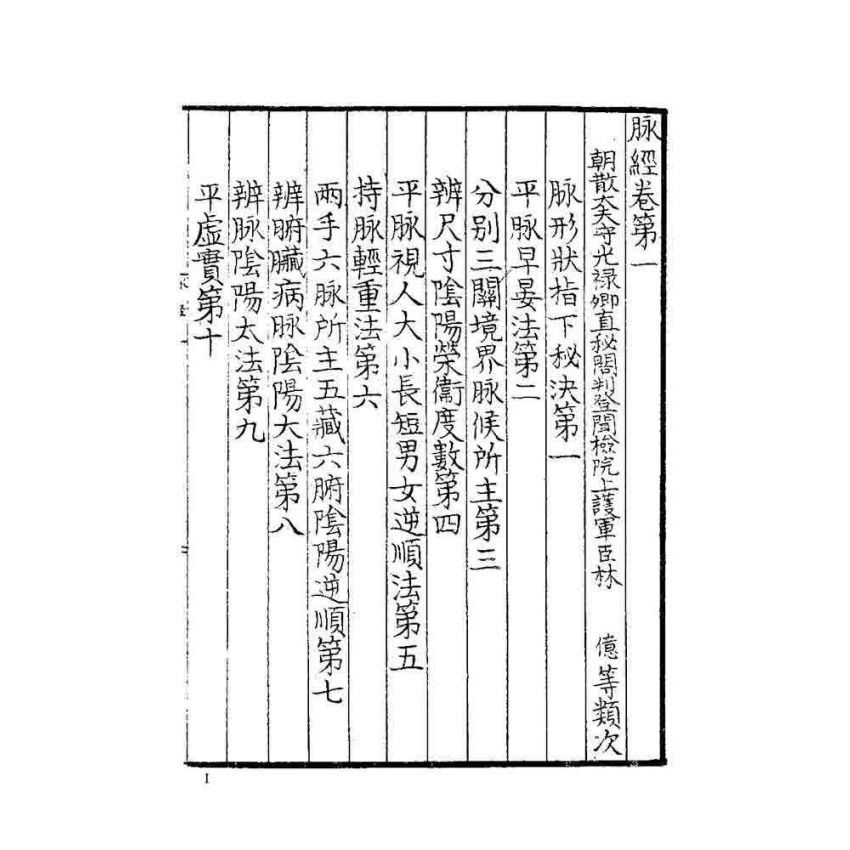 脉經卷第一
朝散大夫守光禄卿直秘閣判登聞檢院上護軍臣林 億等類次
脉形狀指下秘決第一
平脉早晏法第二
分别三關境界脉候所主第三
辨尺寸陰陽榮衛度數第四
平脉視人大小長短男女逆順法第五
持脉輕重法第六
兩手六脉所主五藏六腑陰陽逆順第七
辨腑臟病脉陰陽大法第八
辨脉陰陽太法第九
平虛實第十
1